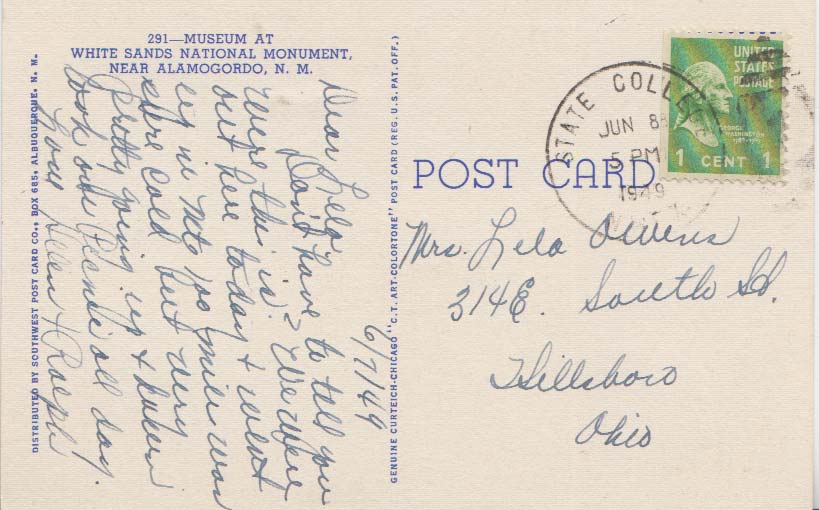 291—MUSEUM AT
WHITE SANDS NATIONAL MONUMENT,
NEAR ALAMOGORDO, N. M.
6/7/49
Dear Lela
Don't have to tell you
where this is. We were
out here today & went
up in Mts 100 miles was
sure cold but very
pretty going up & down
took our Picnic all day.
Love Helen & Ralph
DISTRIBUTED BY SOUTHWEST POST CARD CO., BOX 685, ALBUQUERQUE, N. M.
GENUINE CURTEICH-CHICAGO "C.T. ART-COLORTONE" POST CARD (REG. U.S. PAT. OFF.)
POST CARD
STATE COLLEGE
JUN 8
5 PM
1949
UNITED
STATES
POSTAGE
GEORGE
WASHINGTON
1 CENT 1
Mrs. Lela Owens
314 E. South St.
Hillsboro
Ohio